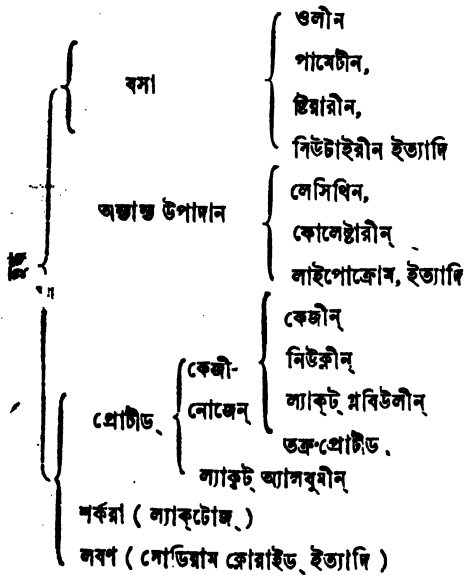 ওলীন
বসা
পামেটীন,
ষ্টিয়ারীন,
বিউটাইরীন ইত্যাদি
অন্যান্য উপাদান
লেসিথিন,
কোলেষ্টারীন্
লাইপোক্রোম, ইত্যাদি
দুগ্ধ
কেজীন্
কেজী-
নিউক্লীন্
নোজেন্
ল্যাক্‌ট্ গ্লবিউলীন্
প্রোটীড্
তক্র-প্রোটীড্
ল্যাক্‌ট্ অ্যালবুমীন্
শর্করা ( ল্যাক্‌টোজ্ )
লবণ ( সোডিয়াম ক্লোরাইড্ ইত্যাদি )